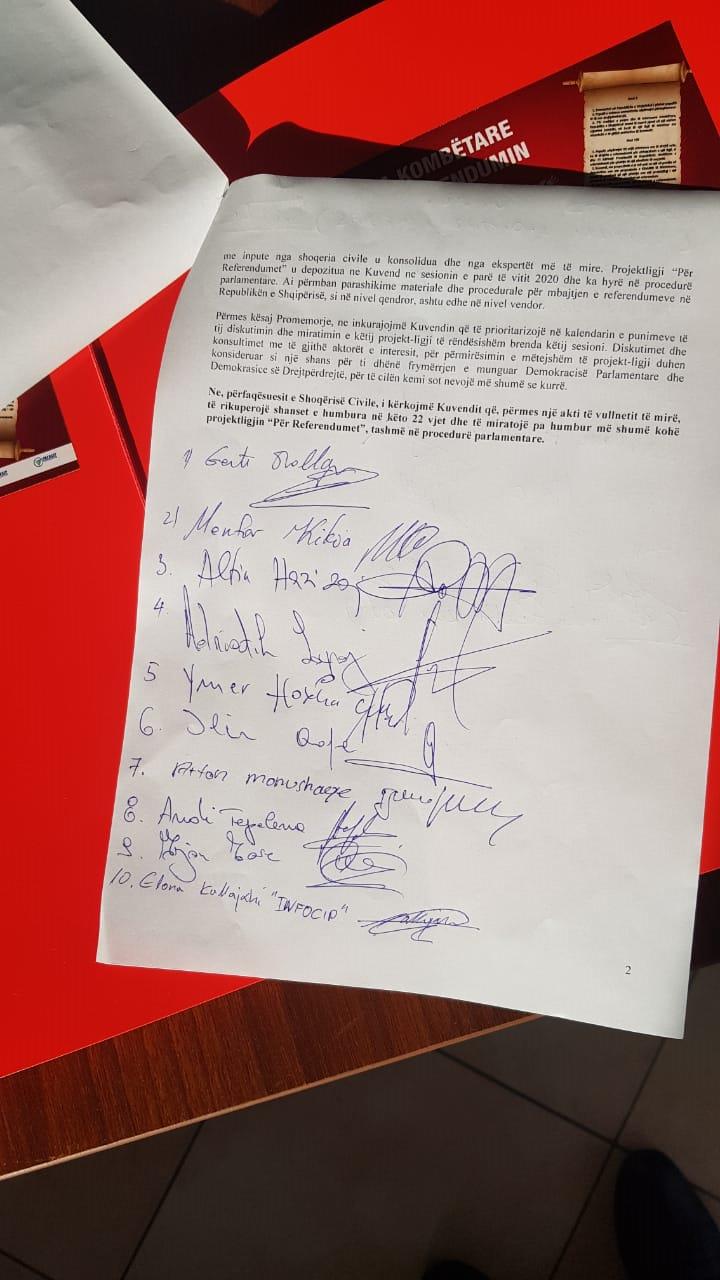 KOMBËTARE
me inpute nga shoqeria civile u konsolidua dhe nga ekspertët më të mire. Projektligji “Për
Referendumet” u depozitua ne Kuvend ne sesionin e parë të vitit 2020 dhe ka hyrë në procedurë
parlamentare. Ai përmban parashikime materiale dhe procedurale për mbajtjen e referendumeve në
Republikën e Shqipërisë, si në nivel qendror, ashtu edhe në nivel vendor.
Përmes kësaj Promemorje, ne inkurajojmë Kuvendin që të prioritarizojë në kalendarin e punimeve të
tij diskutimin dhe miratimin e këtij projekt-ligji të rëndësishëm brenda këtij sesioni. Diskutimet dhe
konsultimet me të gjithë aktorët e interesit, për përmirësimin e mëtejshëm të projekt-ligji duhen
konsideruar si një shans për ti dhënë frymërrjen e munguar Demokracisë Parlamentare dhe
Demokrasice së Drejtpërdrejtë, për të cilën kemi sot nevojë më shumë se kurrë.
Ne, përfaqësuesit e Shoqërisë Civile, i kërkojmë Kuvendit që, përmes një akti të vullnetit të mirë,
të rikuperojë shanset e humbura në këto 22 vjet dhe të miratojë pa humbur më shumë kohë
projektligjin “Për Referendumet”, tashmë në procedurë parlamentare.
1)
2) Mentor Kikia
3. Altin Hazizaj
4.
5 Ymer Hoxha
6. Ilir
7.
8. Andi Tepelena
9.
10. Elona "INFOCIP"
2